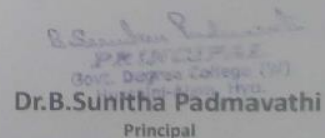 PRINCIPAL
Govt. Degree College (W)
Hyd.
Dr.B.Sunitha Padmavathi
Principal